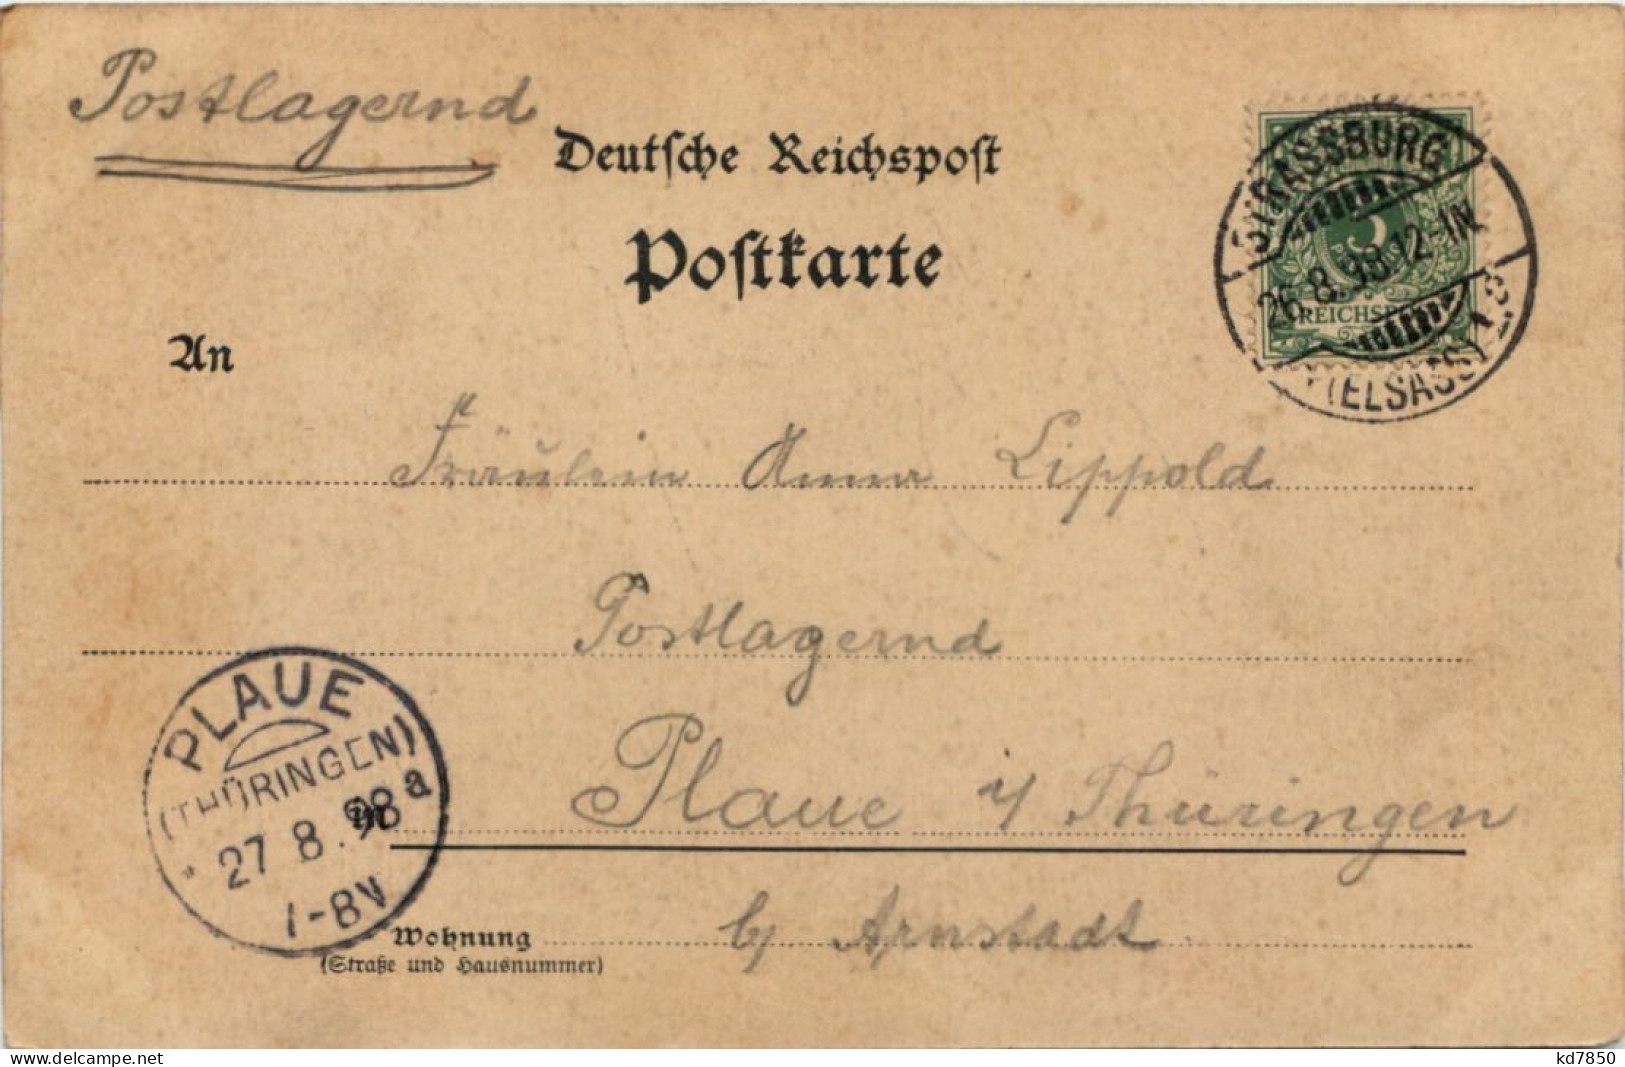 Postlagernd
Deutsche Reichspost
Postkarte
STRASSBURG
26.8.98.12-1N.
REICHSPOST
(ELSASS)
An
Fräulein Anna Lippold
Postlagernd
PLAUE
(THÜRINGEN)
27 8.98 a
7-8V
in
Plaue i/ Thüringen
Wohnung
b/ Arnstadt
(Straße und Hausnummer)
www.delcampe.net
kd7850